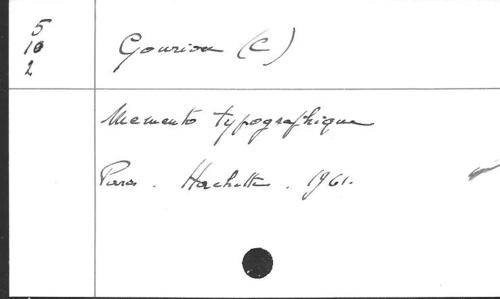 5
10
2
Gouriou (C)
Memento typographique
Paris. Hachette. 1961.